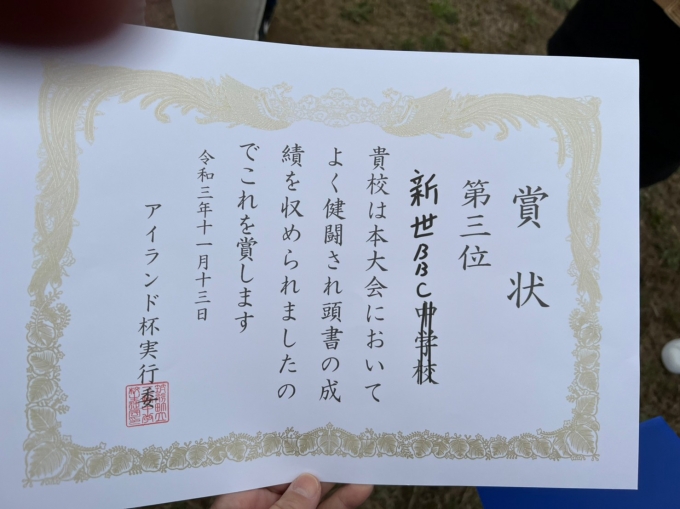 賞状
第三位
新世BBC中学校
貴校は本大会において
よく健闘され頭書の成
績を収められましたの
でこれを賞します
令和三年十一月十三日
アイランド杯実行委